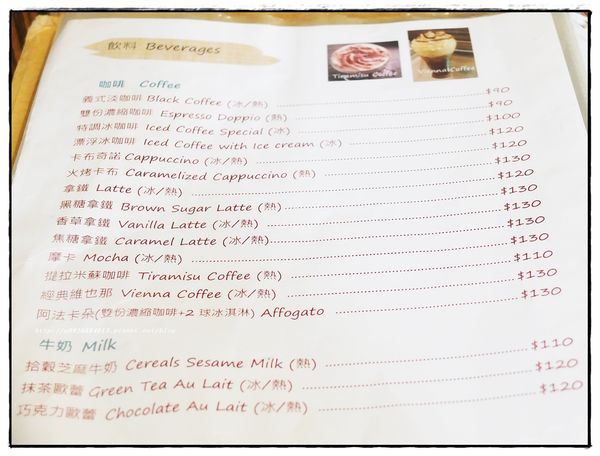 飲料 Beverages
Tiramisu Coffee
Vienna Coffee
咖啡 Coffee
義式淡咖啡 Black Coffee (冰/熱) $90
雙份濃縮咖啡 Espresso Doppio (熱) $90
特調冰咖啡 Iced Coffee Special (冰) $100
漂浮冰咖啡 Iced Coffee with Ice cream (冰) $120
卡布奇諾 Cappuccino (冰/熱) $120
火烤卡布 Caramelized Cappuccino (熱) $130
拿鐵 Latte (冰/熱) $120
黑糖拿鐵 Brown Sugar Latte (熱) $130
香草拿鐵 Vanilla Latte (冰/熱) $130
焦糖拿鐵 Caramel Latte (冰/熱) $130
摩卡 Mocha (冰/熱) $130
提拉米蘇咖啡 Tiramisu Coffee (熱) $110
經典維也那 Vienna Coffee (冰/熱) $130
阿法卡朵(雙份濃縮咖啡+2 球冰淇淋) Affogato $130
牛奶 Milk
拾穀芝麻牛奶 Cereals Sesame Milk (熱) $110
抹茶歐蕾 Green Tea Au Lait (冰/熱) $120
巧克力歐蕾 Chocolate Au Lait (冰/熱) $120